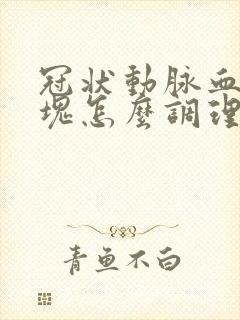 冠状動脉血
塊怎麼調理
青鱼不白